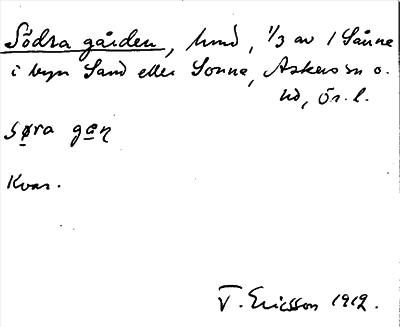 Södra gården, hmd, 1/3 av 1 Sånna
i byn Sand eller Sonna, Askers sn o.
hd, Ör. l.
søra gan
Kvar.
T. Ericsson 1912.